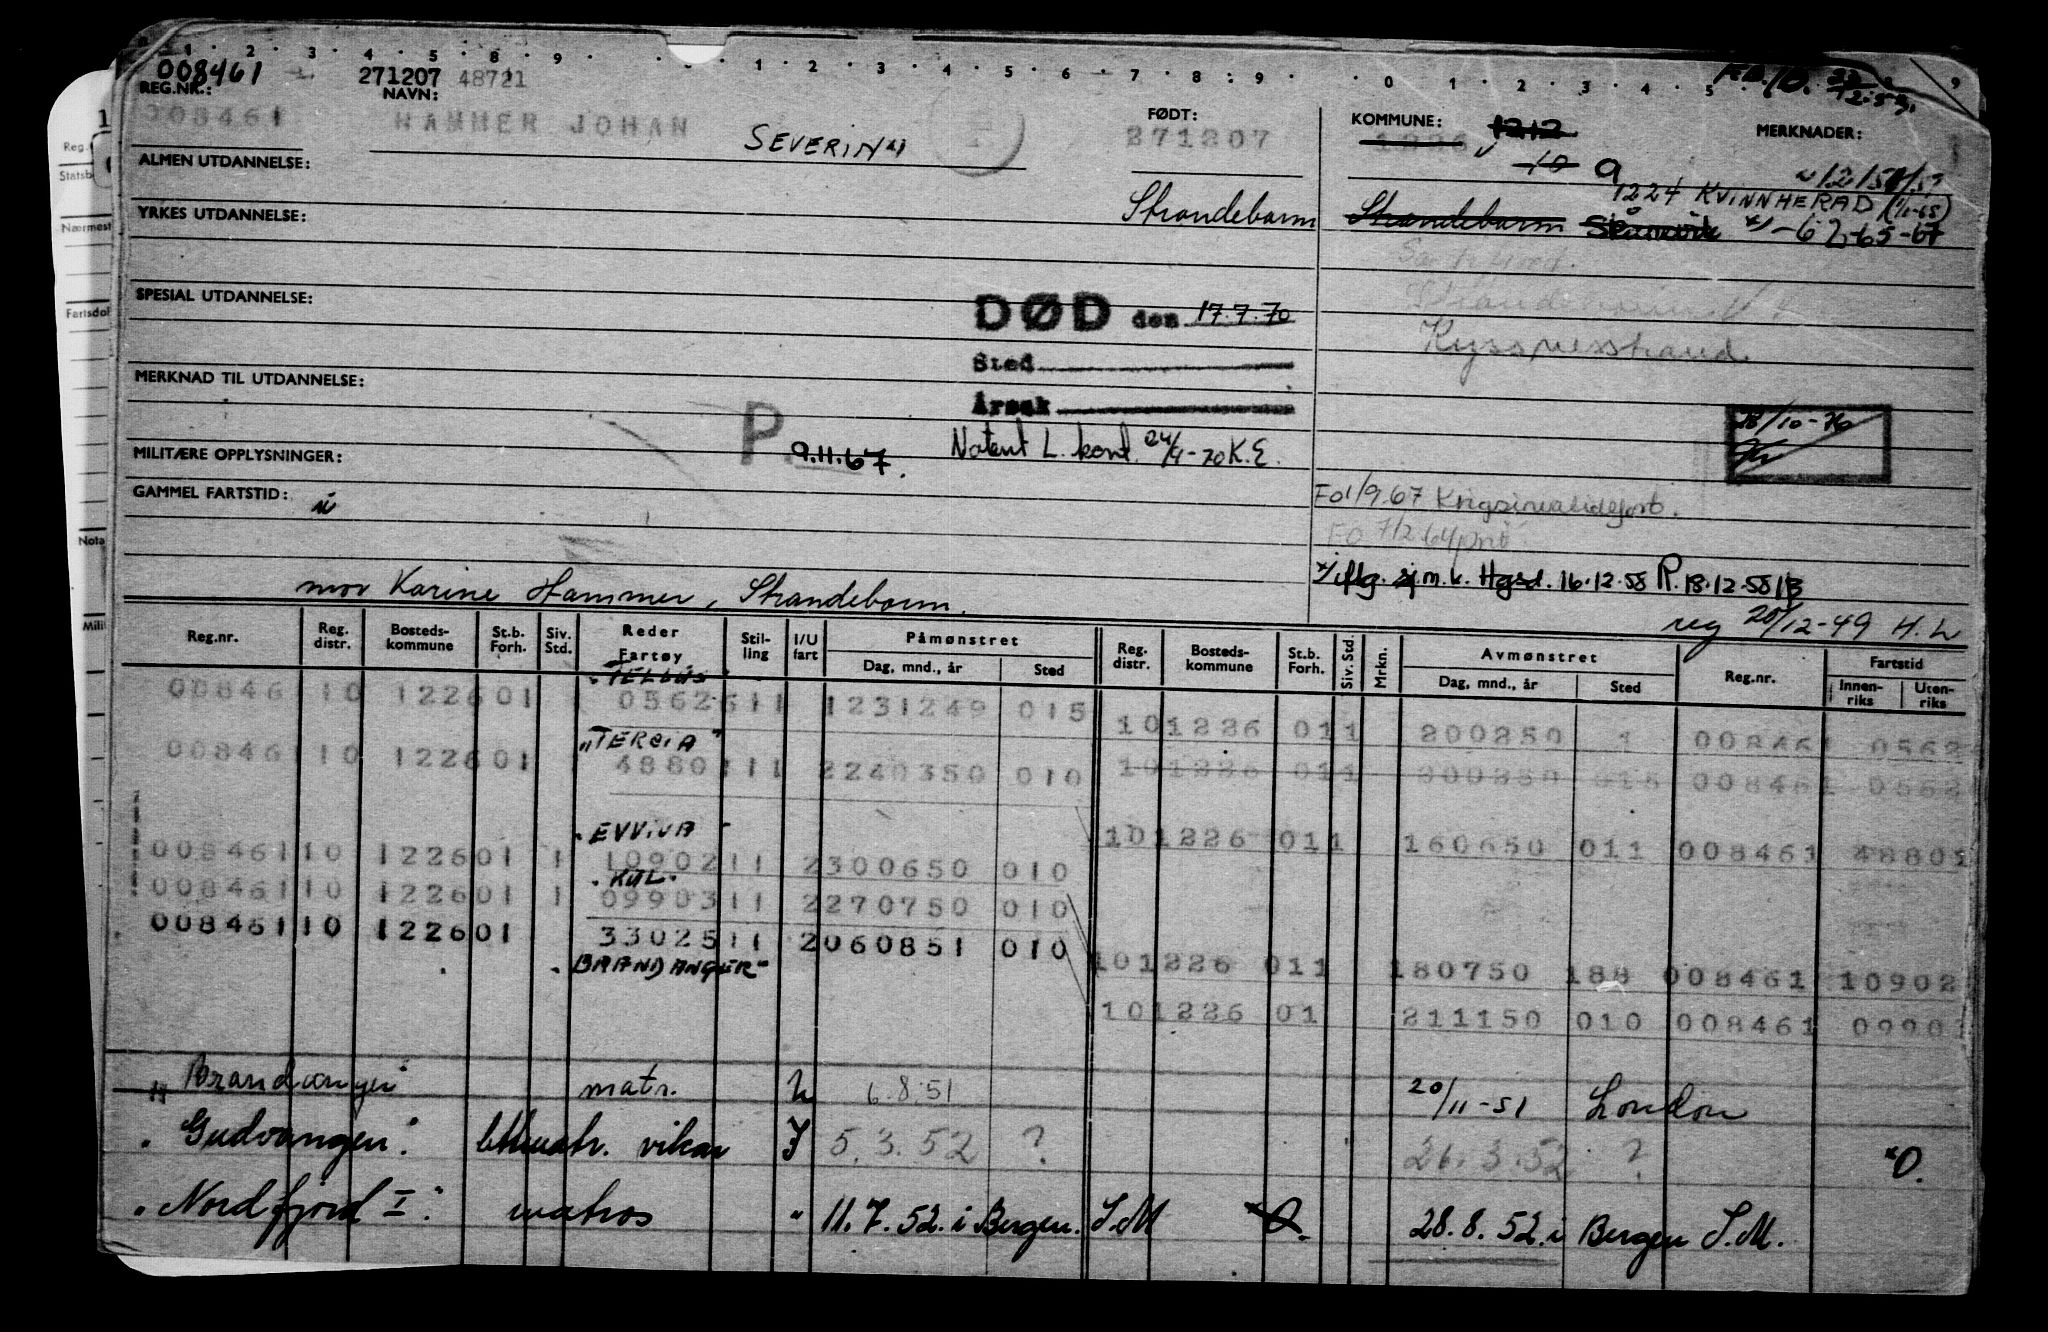 1 · 2 · 3 · 4 · 5 · 8 · 9 · 1 2 · 3 · 4 · 5 · 6 · 7 · 8 : 9 · 0 · 1 · 2 · 3 · 4 · 5 9
008461 271207 48721
REG.NR.: NAVN: FØDT: KOMMUNE: 1212 MERKNADER:
008461 HAMMER JOHAN SEVERIN 271207 1226
10 a
ALMEN UTDANNELSE:
1224 KVINNHERAD
YRKES UTDANNELSE: Strandebarm Strandebarm Skånevik -62-65-67
SPESIAL UTDANNELSE: DØD den 17.7.70
Sted
MERKNAD TIL UTDANNELSE: Årsak
P. 9.11.67. Notert L. kont. K.E.
28/10-76
MILITÆRE OPPLYSNINGER:
GAMMEL FARTSTID:
Fo 1/9.67 Krigsinvalidfort.
FO 7/2 64
m.k. Hgsd. 16.12.58 R. 18.12.58
mor Karine Hammer, Strandebarm.
reg 20/12-49 H.L
Reg.nr. Reg. distr. Bosteds-kommune St.b. Forh. Siv. Std. Reder Fartøy Stil-ling I/U fart Påmønstret Dag, mnd., år Sted Reg. distr. Bosteds-kommune St.b. Forh. Siv. Std. Mrkn. Avmønstret Dag, mnd., år Sted Reg.nr. Fartstid Innen-riks Uten-riks
008461 10 1226 01 05625 11 1231249 015
10 1226 01 1 200250 1 008461 0562
"TERCIA"
008461 10 1226 01 48801 11 2240350 010
10 1226 01 1 200250 015 008461 0562
"EVVIVA"
10 1226 01 1 160650 011 008461 48801
008461 10 1226 01 1 10902 11 2300650 010
008461 10 1226 01 1 09903 11 2270750 010
008461 10 1226 01 33025 11 2060851 010
"BRANDANGER"
10 1226 01 1 180750 188 008461 10902
10 1226 01 211150 010 008461 0990
"Brandanger" matr. U 6.8.51 20/11-51 London
"Gudvangen" vikar I 5.3.52 ? 26.3.52 ? O.
"Nordfjord I" matros " 11.7.52. i Bergen. S.M 28.8.52. i Bergen S.M.